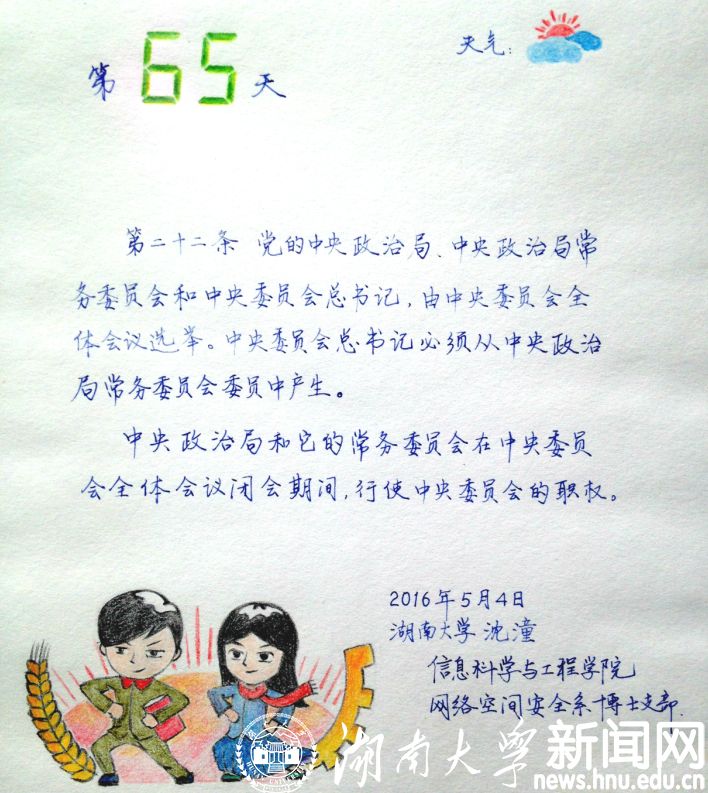 第65天
天气:
第二十二条 党的中央政治局、中央政治局常
务委员会和中央委员会总书记,由中央委员会全
体会议选举。中央委员会总书记必须从中央政治
局常务委员会委员中产生。
中央政治局和它的常务委员会在中央委员
会全体会议闭会期间,行使中央委员会的职权。
2016年5月4日
湖南大学 沈潼
信息科学与工程学院
网络空间安全系博士支部
湖南大学新闻网
news.hnu.edu.cn